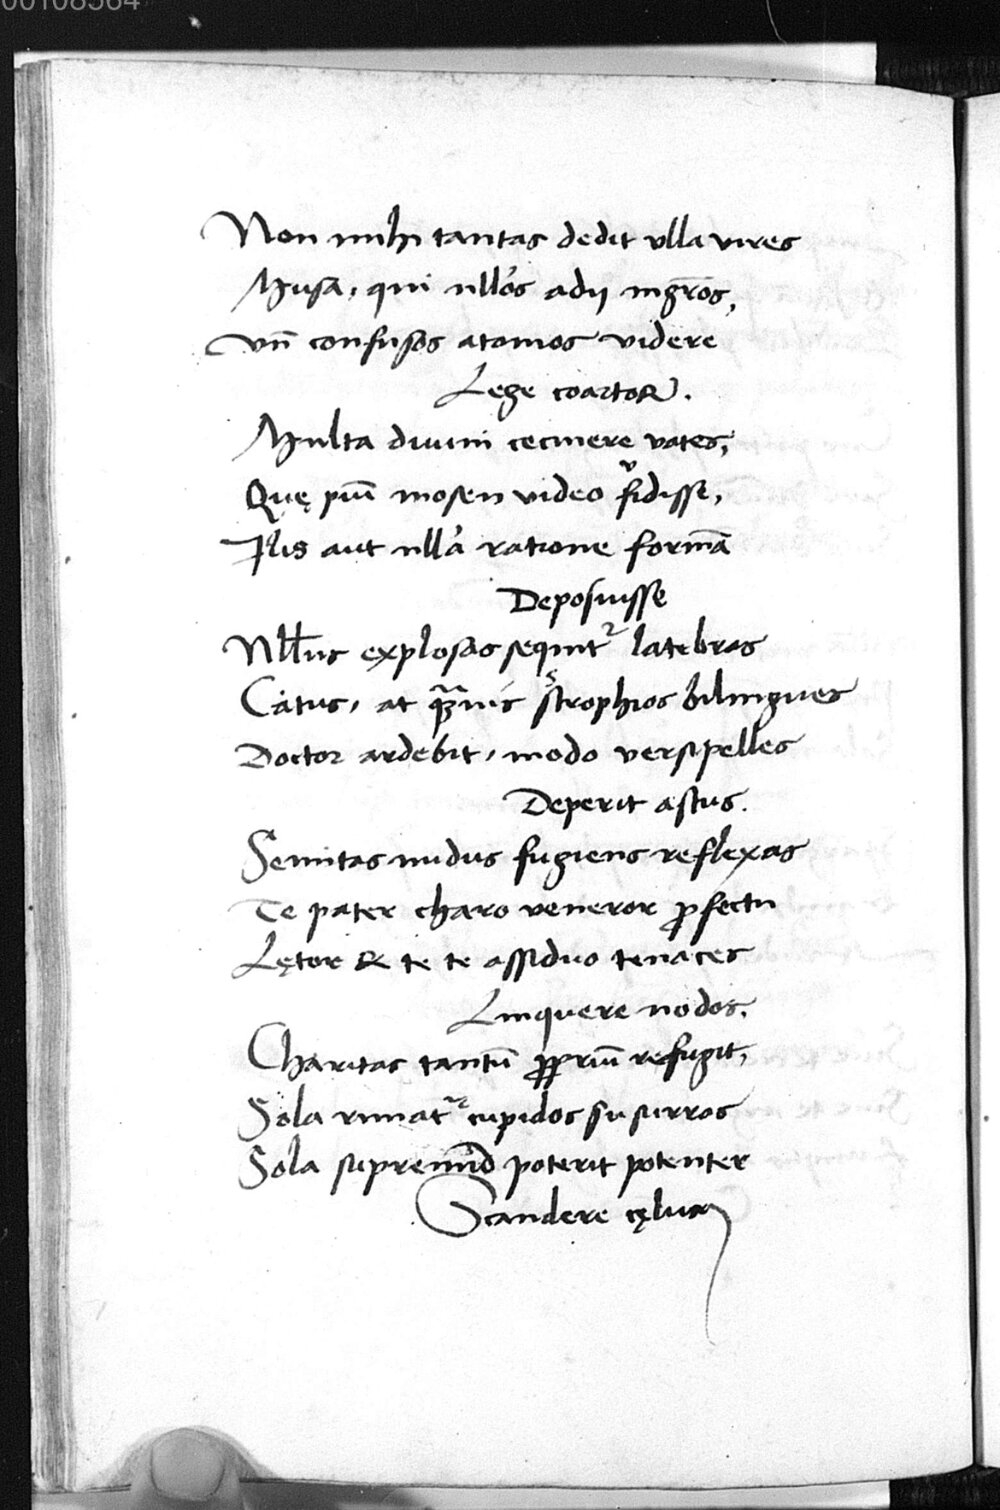 00108564
Non mihi tantas dedit vlla vires
Musā, qui nllōs adij mgr̄os,
Vn̄ confusos atomos videre
Lege coartoꝝ.
Multa diuini cecinere vates,
Quę piū mosen video fidisse,
Ilis aut nlla ratione formā
Deposuisse
explosas sequit latebras
Catus, at strophios bilingues
Doctor ardebit, modo versipelles
Deperit astus.
Semitas nudus fugiens reflexas
Te pater charo veneror ꝓfectu
Lętor & te te assiduo tenaces
Linquere nodos.
Charitas tantū ꝓpriū refugit,
Sola rimat cupidos susurros
Sola poterit potenter
Scandere cęlum